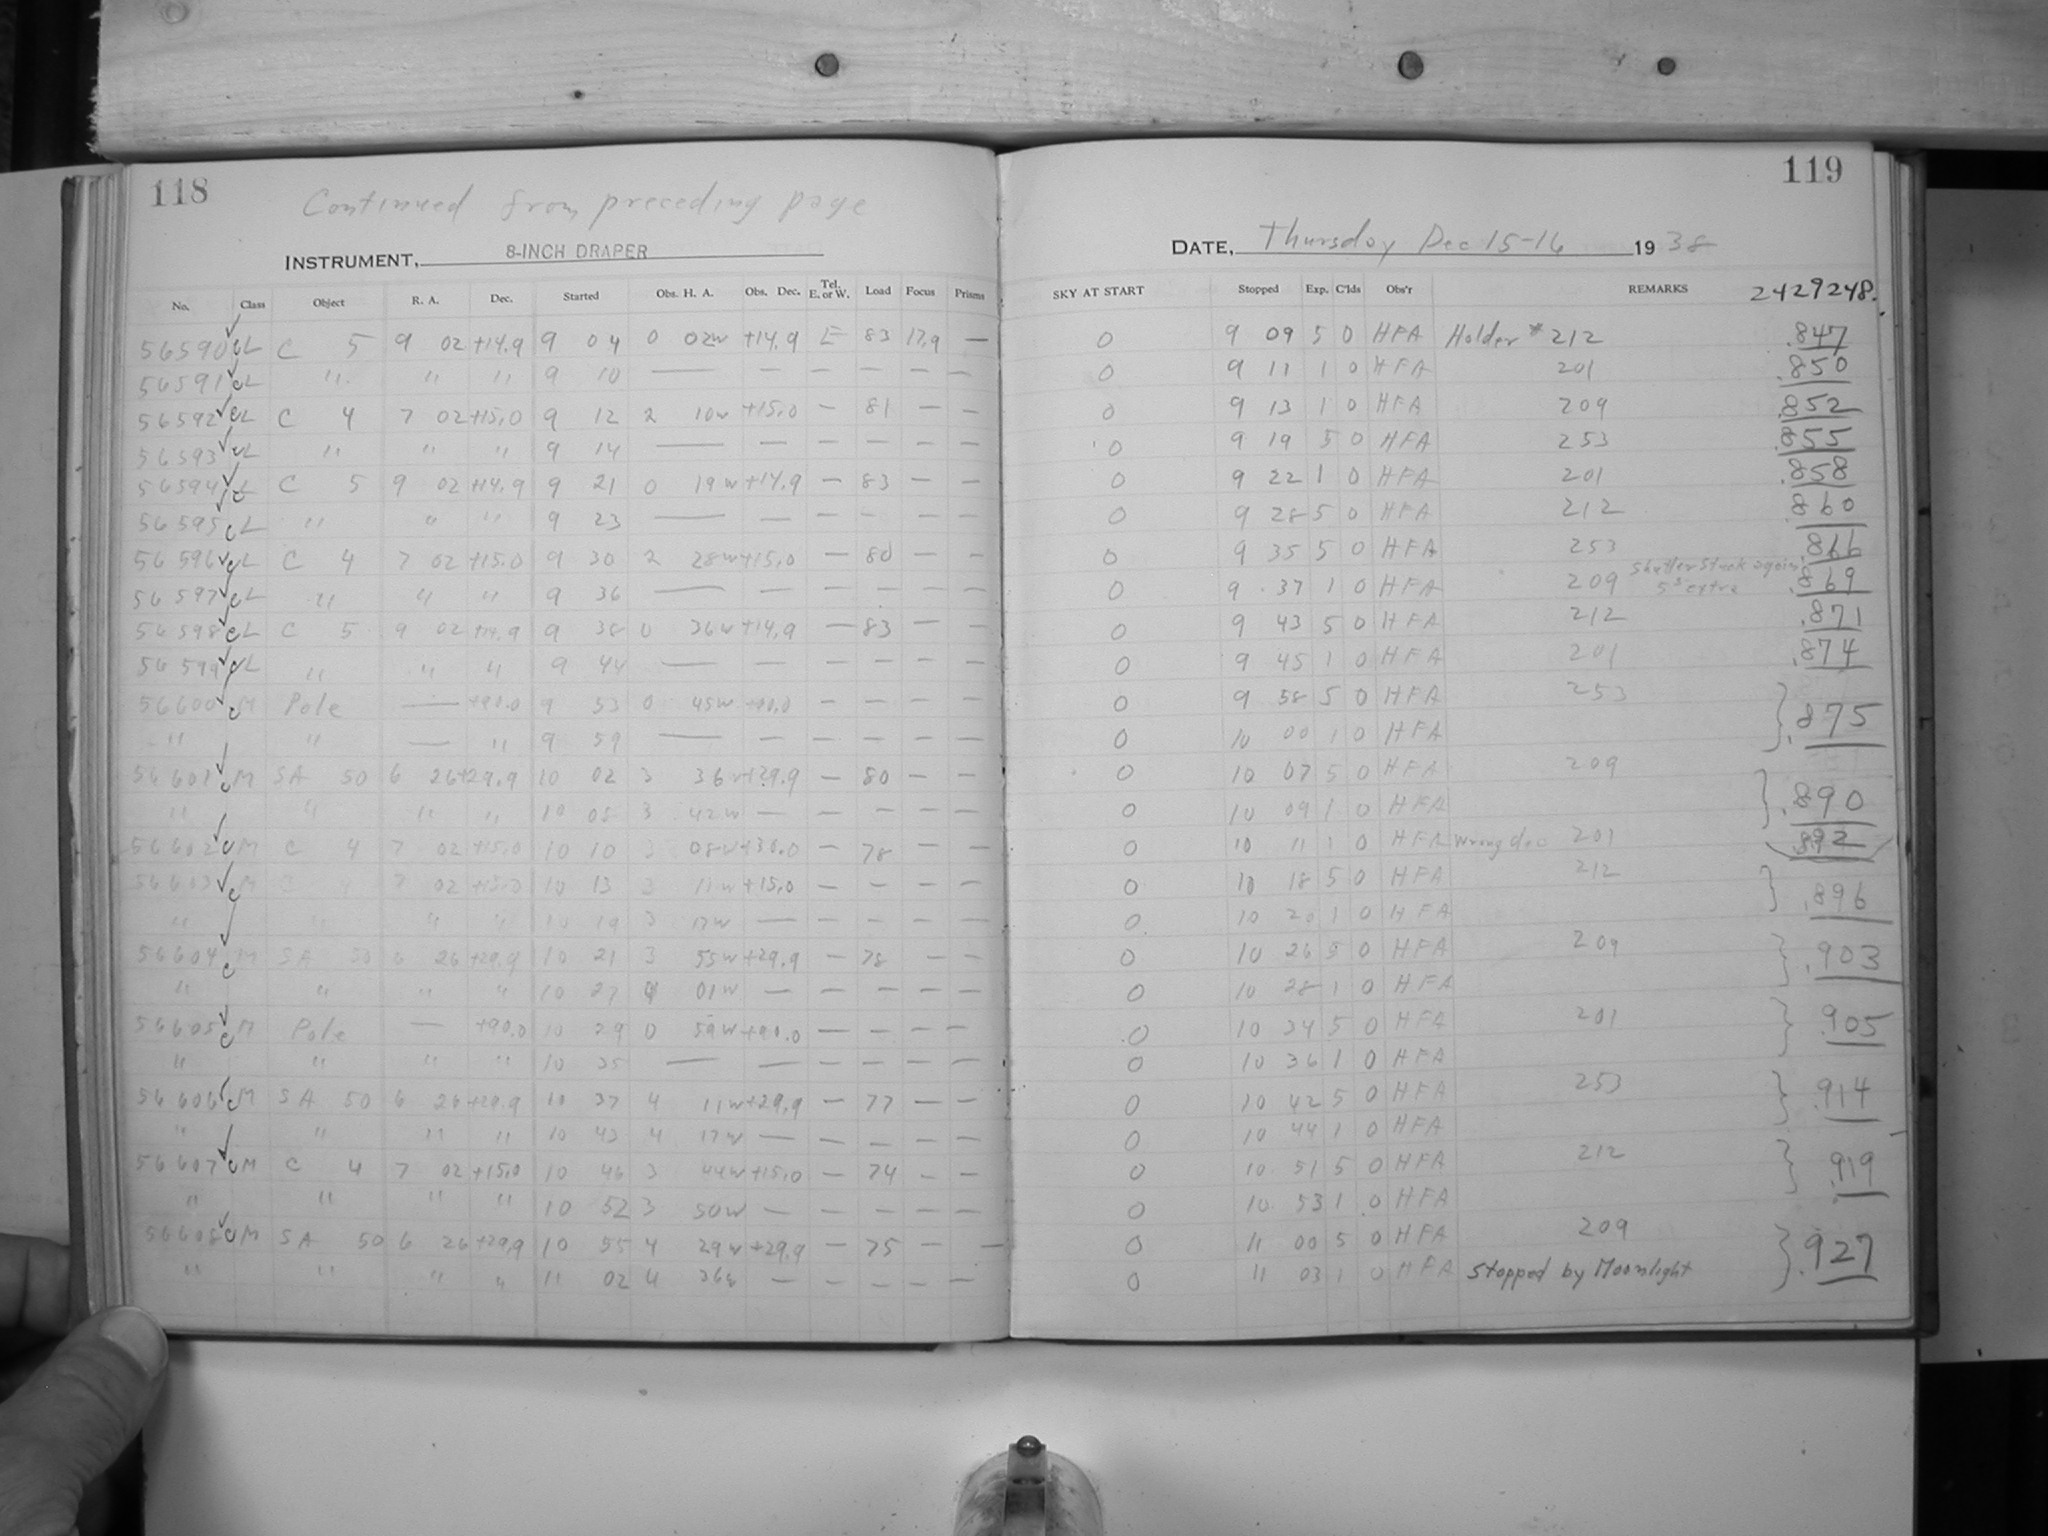 118
Continued from preceding page
INSTRUMENT, 8-INCH DRAPER
No. Class Object R. A. Dec. Started Obs. H. A. Obs. Dec. Tel. E. or W. Load Focus Prisms
56590 cL C 5 9 02 +14.9 9 04 0 02w +14.9 E 83 17.9 —
56591 cL " " " 9 10 — — — — — —
56592 cL C 4 7 02 +15.0 9 12 2 10w +15.0 — 81 — —
56593 cL " " " 9 14 — — — — — —
56594 cL C 5 9 02 +14.9 9 21 0 19w +14.9 — 83 — —
56595 cL " " " 9 23 — — — — — —
56596 cL C 4 7 02 +15.0 9 30 2 28w +15.0 — 80 — —
56597 cL " " " 9 36 — — — — — —
56598 cL C 5 9 02 +14.9 9 38 0 36w +14.9 — 83 — —
56599 cL " " " 9 44 — — — — — —
56600 cM Pole — +90.0 9 53 0 45w +90.0 — — — —
" " — " 9 59 — — — — — —
56601 cM SA 50 6 26 +29.9 10 02 3 36w +29.9 — 80 — —
" " " " 10 08 3 42w — — — — —
56602 cM C 4 7 02 +15.0 10 10 3 08w +30.0 — 78 — —
56603 cM C 4 7 02 +15.0 10 13 3 11w +15.0 — — — —
" " " " 10 19 3 17w — — — — —
56604 cM SA 50 6 26 +29.9 10 21 3 55w +29.9 — 78 — —
" " " " 10 27 4 01w — — — — —
56605 cM Pole — +90.0 10 29 0 59w +90.0 — — — —
" " " " 10 35 — — — — — —
56606 cM SA 50 6 26 +29.9 10 37 4 11w +29.9 — 77 — —
" " " " 10 43 4 17w — — — — —
56607 cM C 4 7 02 +15.0 10 46 3 44w +15.0 — 74 — —
" " " " 10 52 3 50w — — — — —
56608 cM SA 50 6 26 +29.9 10 55 4 29w +29.9 — 75 — —
" " " " 11 02 4 36w — — — — —
119
DATE, Thursday Dec 15-16 1938
SKY AT START Stopped Exp. C'lds Obs'r REMARKS 2429248.
0 9 09 5 0 HFA Holder # 212 .847
0 9 11 1 0 HFA 201 .850
0 9 13 1 0 HFA 209 .852
0 9 19 5 0 HFA 253 .855
0 9 22 1 0 HFA 201 .858
0 9 28 5 0 HFA 212 .860
0 9 35 5 0 HFA 253 .866
0 9 37 1 0 HFA 209 Shutter stuck again 5s extra .869
0 9 43 5 0 HFA 212 .871
0 9 45 1 0 HFA 201 .874
0 9 58 5 0 HFA 253 .875
0 10 00 1 0 HFA
0 10 07 5 0 HFA 209 .890
0 10 09 1 0 HFA
0 10 11 1 0 HFA Wrong dec 201 .892
0 10 18 5 0 HFA 212 .896
0 10 20 1 0 HFA
0 10 26 5 0 HFA 209 .903
0 10 28 1 0 HFA
0 10 34 5 0 HFA 201 .905
0 10 36 1 0 HFA
0 10 42 5 0 HFA 253 .914
0 10 44 1 0 HFA
0 10 51 5 0 HFA 212 .919
0 10 53 1 0 HFA
0 11 00 5 0 HFA 209 .927
0 11 03 1 0 HFA Stopped by Moonlight